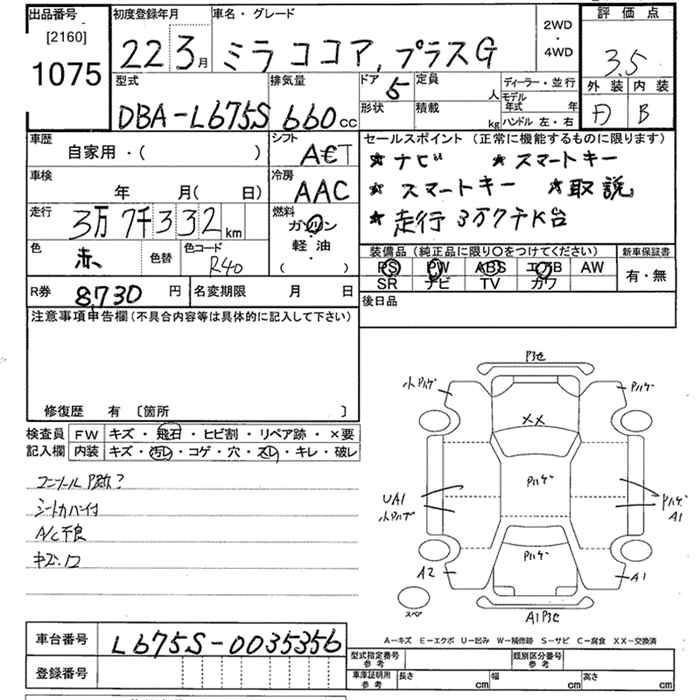 出品番号
[2160]
1075
初度登録年月
22 3月
車名・グレード
ミラココア,プラスG
2WD
・
4WD
評価点
3.5
外装 内装
D B
型式
DBA-L675S
排気量
660cc
ドア
5
定員
人
形状
積載
kg
ディーラー・並行
モデル年式 年
ハンドル 左・右
車歴
自家用・( )
シフト
車検
年 月( 日)
冷房
AAC
走行
3万7千332km
燃料
ガソリン
軽油
・
( )
色
赤
色替
色コード
R40
セールスポイント(正常に機能するものに限ります)
★ナビ ★スマートキー
★スマートキー ★取説
★走行3万7千K台
装備品(純正品に限り○をつけてください)
PS PW ABS エアB AW
SR ナビ TV カワ
新車保証書
有・無
R券
8,730円
名変期限 月 日
後日品
注意事項申告欄(不具合内容等は具体的に記入して下さい)
修復歴 有 〔箇所 〕
検査員記入欄
FW キズ・飛石・ヒビ割・リペア跡・×要
内装 キズ・汚レ・コゲ・穴・スレ・キレ・破レ
シートカバー付
A/C不良
キズ.凹
小Pハゲ
Pハゲ
XX
Pハゲ
UA1
小Pハゲ
Pハゲ
A1
Pハゲ
A2
A1
スペア
A-キズ E-エクボ U-凹み W-補修跡 S-サビ C-腐食 XX-交換済
車台番号
L675S-0035356
登録番号
型式指定番号
参考
類別区分番号
参考
車庫証明用
参考
長さ cm
幅 cm
高さ cm